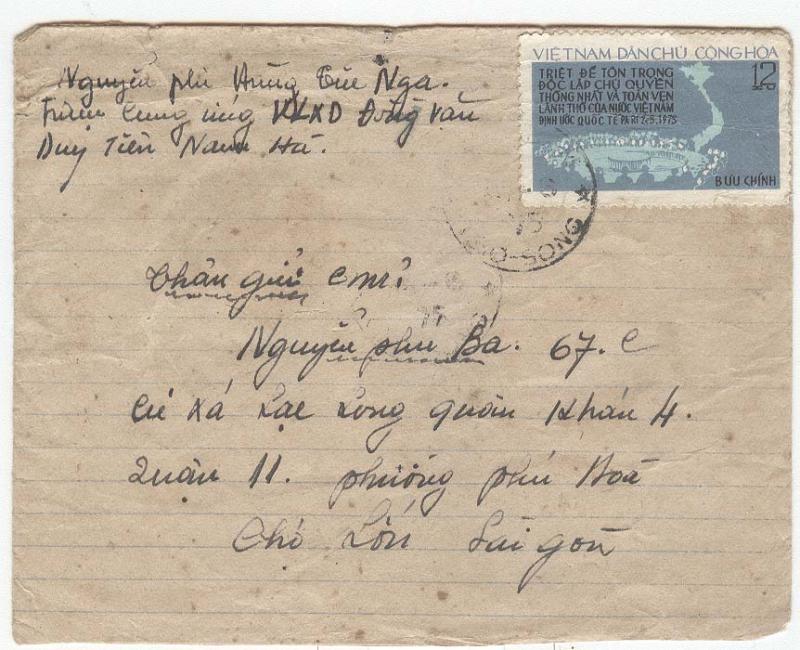 Nguyễn phú Hùng Tuệ Nga.
Trạm Cung ứng VLXD Đồng Văn
Duy Tiên Nam Hà.
VIỆT NAM DÂN CHỦ CỘNG HÒA
TRIỆT ĐỂ TÔN TRỌNG
ĐỘC LẬP CHỦ QUYỀN
THỐNG NHẤT VÀ TOÀN VẸN
LÃNH THỔ CỦA NƯỚC VIỆT NAM
ĐỊNH ƯỚC QUỐC TẾ PARI 2-3-1973
12
XU
BƯU CHÍNH
Thân gửi
Nguyễn phú Bá. 67. C
Cư xá Lạc Long quân Khán 4.
Quận 11. phường phú Hoà
Chợ Lớn Sàigòn